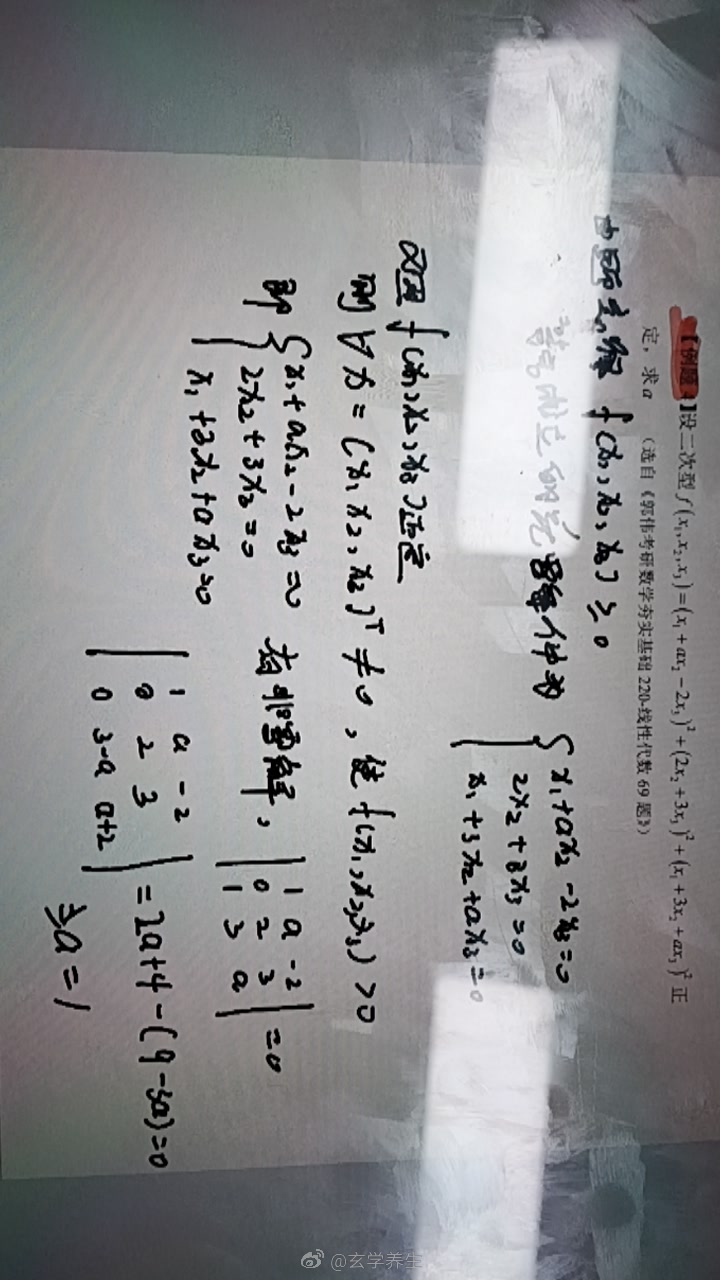 【例题4】设二次型 f(x₁,x₂,x₃)=(x₁+ax₂-2x₃)²+(2x₂+3x₃)²+(x₁+3x₂+ax₃)² 正
定，求a （选自《郭伟考研数学夯实基础220-线性代数69题》）
f(x₁,x₂,x₃)≥0
件为 { x₁+ax₂-2x₃=0
2x₂+3x₃=0
x₁+3x₂+ax₃=0
f(x₁,x₂,x₃)正定
则∀x=(x₁,x₂,x₃)ᵀ≠0，使f(x₁,x₂,x₃)>0
即 { x₁+ax₂-2x₃=0
2x₂+3x₃=0
x₁+3x₂+ax₃=0
有非零解，| 1 a -2
0 2 3
1 3 a | =0
| 1 a -2
0 2 3
0 3-a a+2 | =2a+4-(9-3a)=0
a=1
@玄学养生